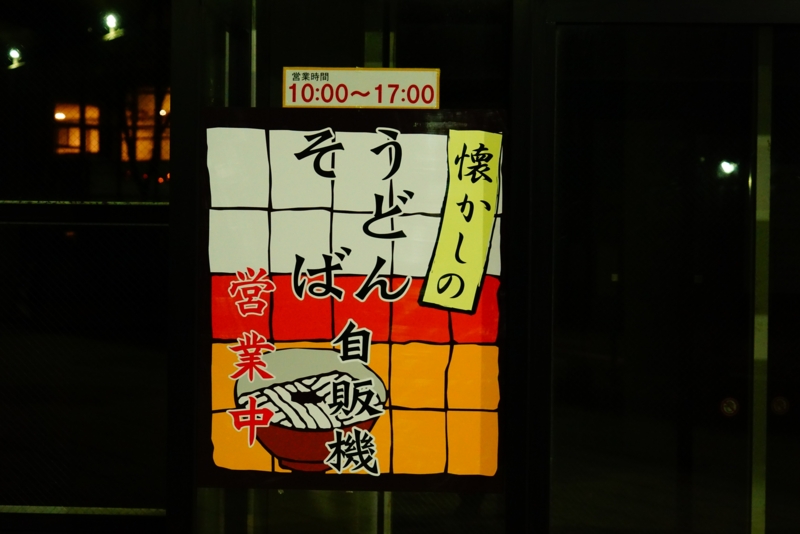 営業時間
10:00～17:00
懐かしの
うどん
そば
自販機
営業中